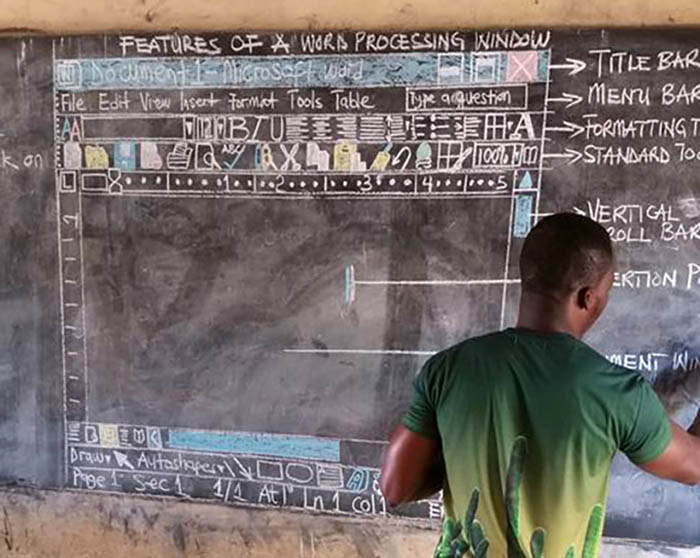 FEATURES OF A WORD PROCESSING WINDOW
W Document 1 - Microsoft Word
TITLE BAR
File Edit View Insert Format Tools Table
Type a question
MENU BAR
AA 12 B I U A
FORMATTING T
ABC 100%
STANDARD TOO
k on
L 8 1 2 3 4 5
VERTICAL
ROLL BAR
ERTION P
MENT WIN
Draw Autoshapes
Page 1 Sec 1 1/1 At 1" Ln 1 Col